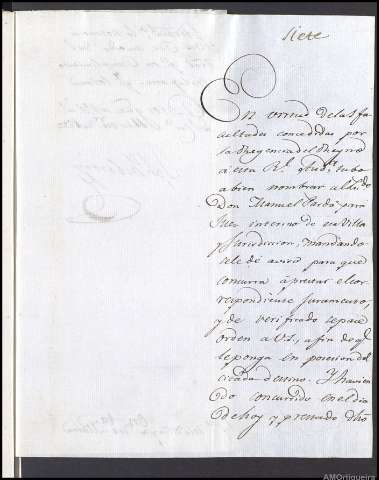 Siete
En virtud de las fa
cultades concedidas por
la Regencia del Reyno
à esta Rl. Audª. tubo
abien nombrar al Lido
Don Manuel Pardo por
Juez interino de esa Villa
y Jurisdicion, mandando
sele dé aviso para que
concurra à prestar el cor
respondiente juramento,
y de verificado se pase
orden a V.S., a fin de q.e
le ponga en posesion del
citado destino. Y havien
do concurrido en el dia
de hoy y prestado dho
AMOrtigueira